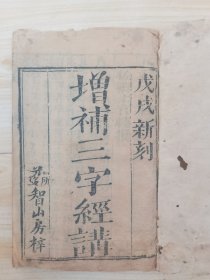 戊戌新刻
增補三字經講
智山房梓